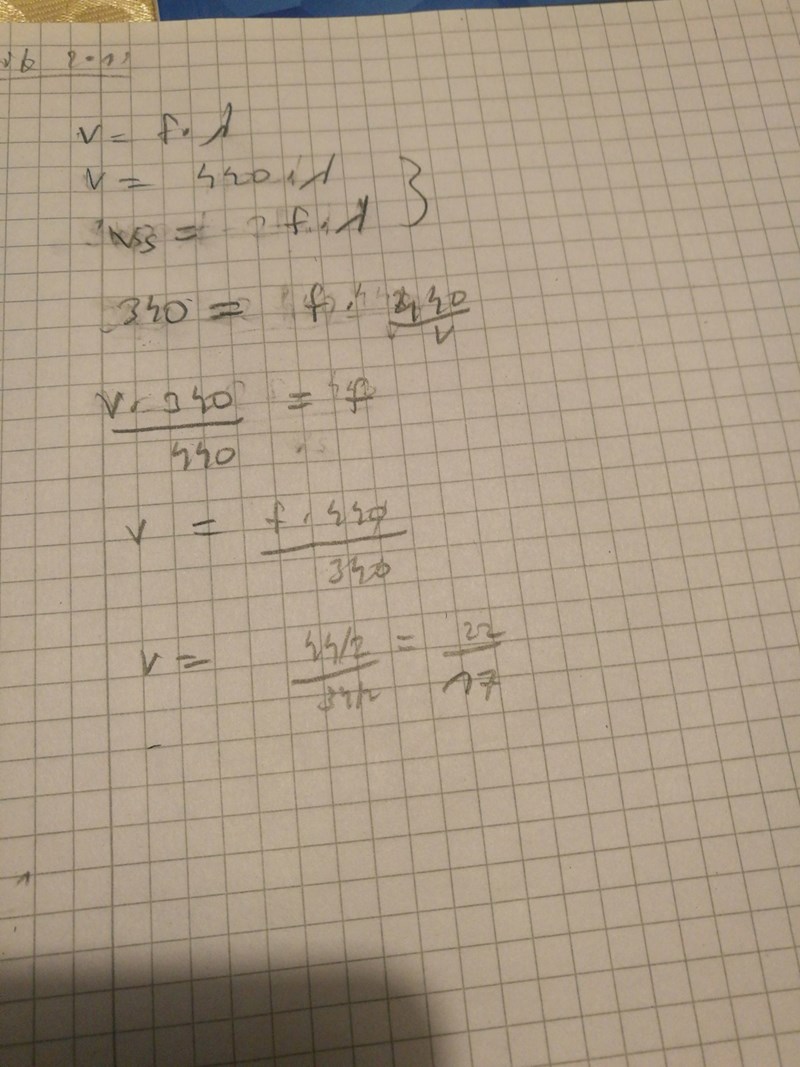 v = f · λ
v = 440 · λ
= f · λ }
340 = f · 440/v
v · 340/440 = f
v = f · 440/340
v = 44/2/34/2 = 22/17